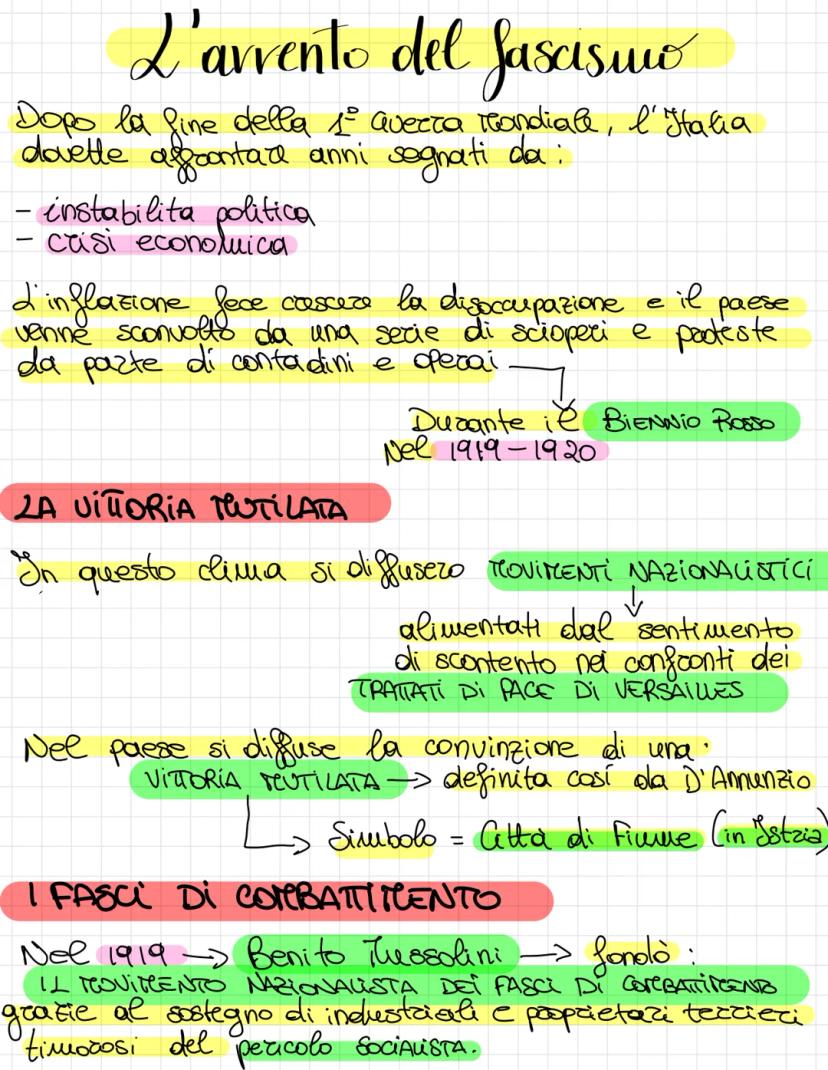 L'avvento del fascismo
Dopo la fine della 1º guerra mondiale, l'Italia
dovette affrontare anni segnati da:
- instabilita politica
- crisi economica
L'inflazione fece crescere la disoccupazione e il paese
venne sconvolto da una serie di scioperi e proteste
da parte di contadini e operai
Durante il BIENNIO ROSSO
Nel 1919-1920
LA VITTORIA MUTILATA
In questo clima si diffusero MOVIMENTI NAZIONALISTICI
alimentati dal sentimento
di scontento nei confronti dei
TRATTATI DI PACE DI VERSAILLES
Nel paese si diffuse la convinzione di una
VITTORIA MUTILATA → definita così da D'Annunzio
Simbolo = Città di Fiume (in Istria)
I FASCI DI COMBATTIMENTO
Nel 1919 → Benito Mussolini → fondò:
IL MOVIMENTO NAZIONALISTA DEI FASCI DI COMBATTIMENTO
grazie al sostegno di industriali e proprietari terrieri
timorosi del pericolo SOCIALISTA.